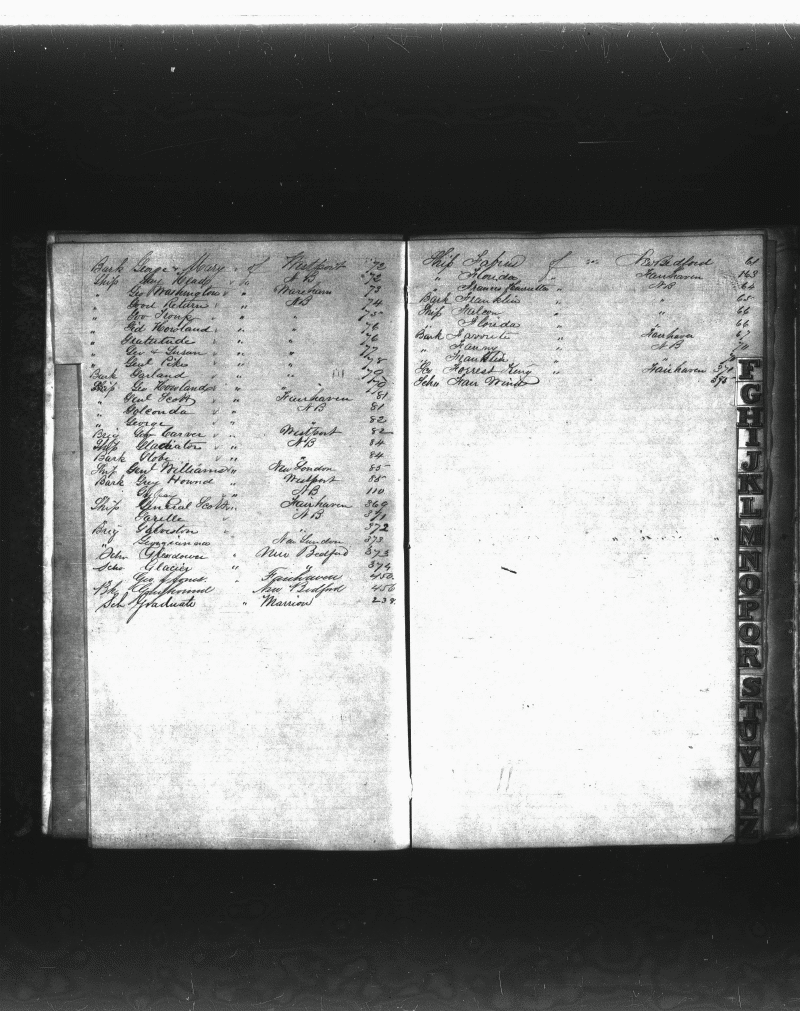 Bark George & Mary " of Westport 72
Ship Genl " " NB 272
" Geo Washington " " Wareham 73
" Good Return " " NB 74
" Geo " " " 75
" Gid Howland " " " 76
" Gratitude " " " 76
" Geo & Susan " " " 77
" Genl Pike " " " 78
Bark Garland " " " 79
Ship Geo Howland " " " 170
" Genl Scott " " Fairhaven 81
" Golconda " " NB 81
" George " " " 82
Brig Geo Carver " " Westport 82
Ship Gladiator " " NB 84
Bark Globe " " 84
Ship Genl Williams " " New London 85
Bark Grey Hound " Westport 85
" NB 110
Ship General Scott " Fairhaven 369
Gazelle " NB 371
Brig Galveston " " 372
Georgianna New London 373
Schr Glendower " New Bedford 373
Schr Glacier " " 374
Geo & " Fairhaven 450
Bk Greyhound New Bedford 456
Sch Graduate " Marrion 238
Ship Fabius of New Bedford 61
" Florida " Fairhaven 143
" " NB 64
Bark Franklin " " 65
Ship Falcon " " 66
" Florida " 66
Bark Favorite " Fairhaven 67
" Fanny " NB 70
Franklin " "
Forrest King " Fairhaven 371
Schr Fair Wind 375
F
G
H
I
J
K
L
M
N
O
P
Q
R
S
T
U
V
W
Y
Z